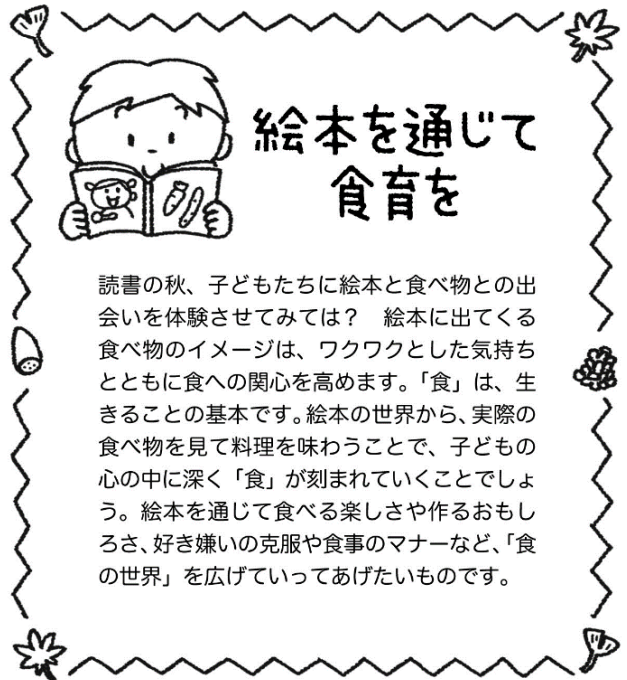 絵本を通じて
食育を
読書の秋、子どもたちに絵本と食べ物との出
会いを体験させてみては？　絵本に出てくる
食べ物のイメージは、ワクワクとした気持ち
とともに食への関心を高めます。「食」は、生
きることの基本です。絵本の世界から、実際の
食べ物を見て料理を味わうことで、子どもの
心の中に深く「食」が刻まれていくことでしょ
う。絵本を通じて食べる楽しさや作るおもし
ろさ、好き嫌いの克服や食事のマナーなど、「食
の世界」を広げていってあげたいものです。